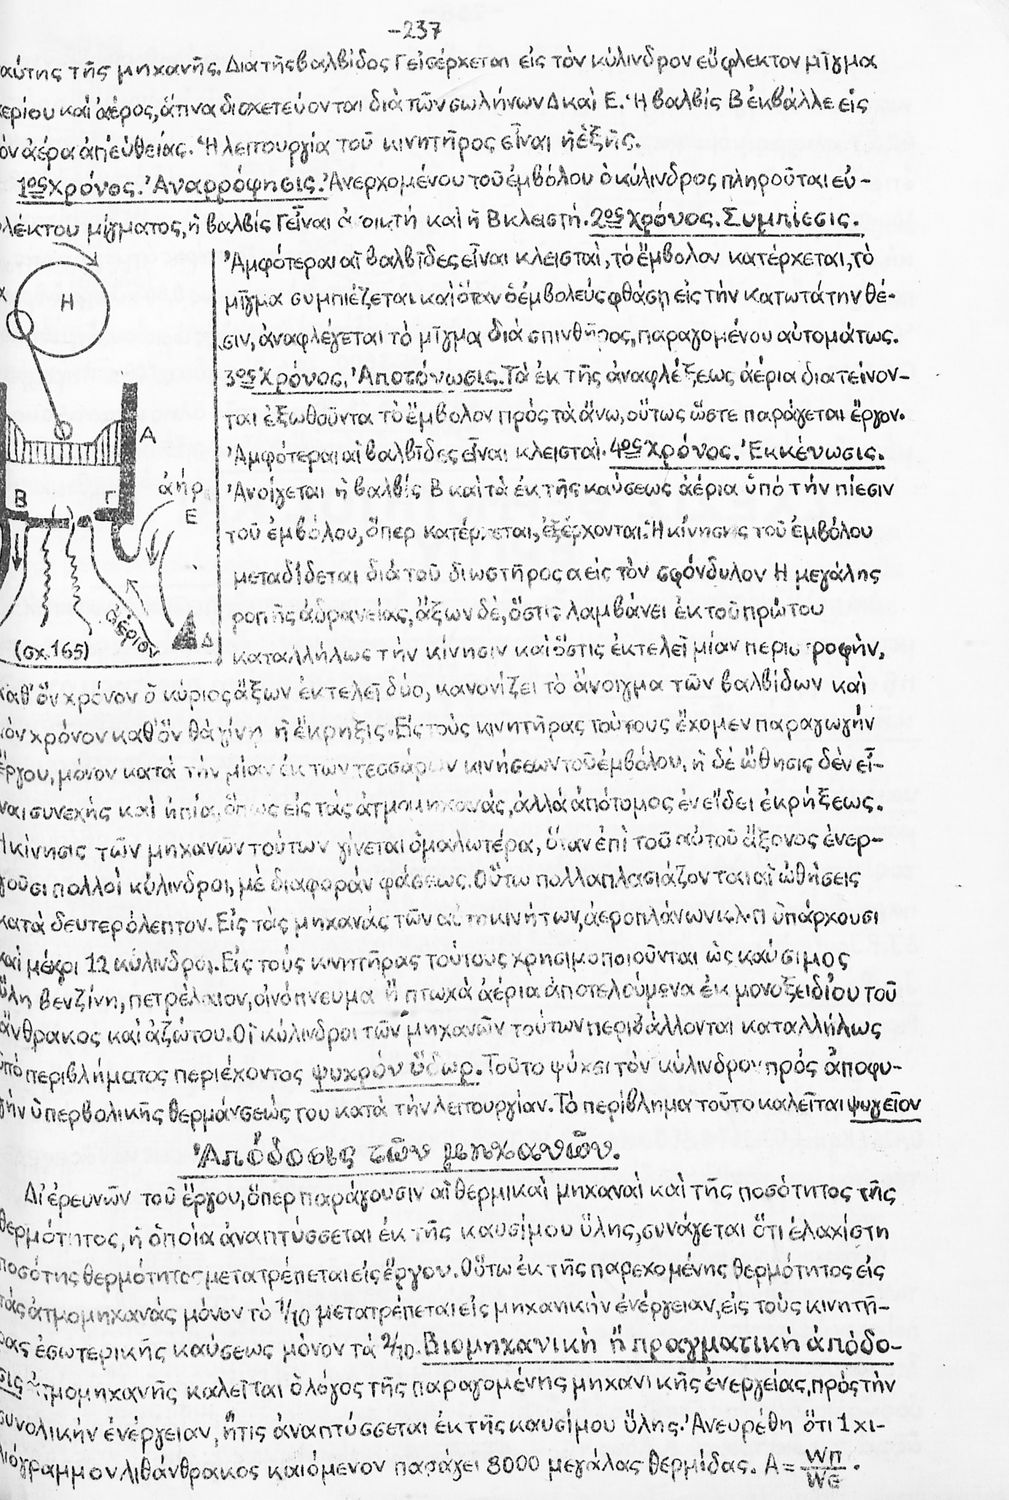 -237
αύτης τῆς μηχανῆς. Διὰ τῆς βαλβίδος Γ εἰσέρχεται εἰς τὸν κύλινδρον εὔφλεκτον μῖγμα
ερίου καὶ ἀέρος, ἅτινα διοχετεύονται διὰ τῶν σωλήνων Δ καὶ Ε. Ἡ βαλβὶς Β ἐκβάλλει εἰς
όν ἀέρα ἀπ' εὐθείας. Ἡ λειτουργία τοῦ κινητῆρος εἶναι ἡ ἑξῆς.
1ος Χρόνος. Ἀναρρόφησις. Ἀνερχομένου τοῦ ἐμβόλου ὁ κύλινδρος πληροῦται εὐ-
λέκτου μίγματος, ἡ βαλβὶς Γ εἶναι ἀνοικτὴ καὶ ἡ Β κλειστή. 2ος Χρόνος. Συμπίεσις.
Ἀμφότεραι αἱ βαλβῖδες εἶναι κλεισταί, τὸ ἔμβολον κατέρχεται, τὸ
μῖγμα συμπιέζεται καὶ ὅταν ὁ ἐμβολεὺς φθάσῃ εἰς τὴν κατωτάτην θέ-
σιν, ἀναφλέγεται τὸ μῖγμα διὰ σπινθῆρος, παραγομένου αὐτομάτως.
3ος Χρόνος. Ἀποτόνωσις. Τὰ ἐκ τῆς ἀναφλέξεως ἀέρια διατείνον-
ται ἐξωθοῦντα τὸ ἔμβολον πρὸς τὰ ἄνω, οὕτως ὥστε παράγεται ἔργον.
Ἀμφότεραι αἱ βαλβῖδες εἶναι κλεισταί. 4ος Χρόνος. Ἐκκένωσις.
Ἀνοίγεται ἡ βαλβὶς Β καὶ τὰ ἐκ τῆς καύσεως ἀέρια ὑπὸ τὴν πίεσιν
τοῦ ἐμβόλου, ὅπερ κατέρχεται, ἐξέρχονται. Ἡ κίνησις τοῦ ἐμβόλου
μεταδίδεται διὰ τοῦ διωστῆρος α εἰς τὸν σφόνδυλον Η μεγάλης
ροπῆς ἀδρανείας, ἄξων δὲ, ὅστις λαμβάνει ἐκ τοῦ πρώτου
καταλλήλως τὴν κίνησιν καὶ ὅστις ἐκτελεῖ μίαν περιστροφὴν,
Η
Α
Β
Γ
ἀὴρ
Ε
ἀέριον
Δ
(σχ. 165)
καθ' ὃν χρόνον ὁ κύριος ἄξων ἐκτελεῖ δύο, κανονίζει τὸ ἄνοιγμα τῶν βαλβίδων καὶ
όν χρόνον καθ' ὃν θὰ γίνῃ ἡ ἔκρηξις. Εἰς τοὺς κινητῆρας τούτους ἔχομεν παραγωγὴν
ἔργου, μόνον κατὰ τὴν μίαν ἐκ των τεσσάρων κινήσεων τοῦ ἐμβόλου, ἡ δὲ ὤθησις δὲν εἶ-
ναι συνεχὴς καὶ ἠπία, ὅπως εἰς τὰς ἀτμομηχανάς, ἀλλὰ ἀπότομος ἐν εἴδει ἐκρήξεως.
Ἡ κίνησις τῶν μηχανῶν τούτων γίνεται ὁμαλωτέρα, ὅταν ἐπὶ τοῦ αὐτοῦ ἄξονος ἐνερ-
γοῦσι πολλοὶ κύλινδροι, μὲ διαφορὰν φάσεως. Οὕτω πολλαπλασιάζονται αἱ ὠθήσεις
κατὰ δευτερόλεπτον. Εἰς τὰς μηχανὰς τῶν αὐτοκινήτων, ἀεροπλάνων κ.λ.π ὑπάρχουσι
καὶ μέχρι 12 κύλινδροι. Εἰς τοὺς κινητῆρας τούτους χρησιμοποιοῦνται ὡς καύσιμος
ὕλη βενζίνη, πετρέλαιον, οἰνόπνευμα ἢ πτωχὰ ἀέρια ἀποτελούμενα ἐκ μονοξειδίου τοῦ
ἄνθρακος καὶ ἀζώτου. Οἱ κύλινδροι τῶν μηχανῶν τούτων περιβάλλονται καταλλήλως
ὑπὸ περιβλήματος περιέχοντος ψυχρὸν ὕδωρ. Τοῦτο ψύχει τὸν κύλινδρον πρὸς ἀποφυ-
γὴν ὑπερβολικῆς θερμάνσεώς του κατὰ τὴν λειτουργίαν. Τὸ περίβλημα τοῦτο καλεῖται ψυγεῖον
Ἀπόδοσις τῶν μηχανῶν.
Δι' ἐρευνῶν τοῦ ἔργου, ὅπερ παράγουσιν αἱ θερμικαὶ μηχαναὶ καὶ τῆς ποσότητος τῆς
θερμότητος, ἡ ὁποία ἀναπτύσσεται ἐκ τῆς καυσίμου ὕλης, συνάγεται ὅτι ἐλαχίστη
ποσότης θερμότητος μετατρέπεται εἰς ἔργον. Οὕτω ἐκ τῆς παρεχομένης θερμότητος εἰς
τὰς ἀτμομηχανὰς μόνον τὸ 1/10 μετατρέπεται εἰς μηχανικὴν ἐνέργειαν, εἰς τοὺς κινητῆ-
ρας ἐσωτερικῆς καύσεως μόνον τὰ 2/10. Βιομηχανικὴ ἢ πραγματικὴ ἀπόδο-
σις ἀτμομηχανῆς καλεῖται ὁ λόγος τῆς παραγομένης μηχανικῆς ἐνεργείας, πρὸς τὴν
συνολικὴν ἐνέργειαν, ἥτις ἀναπτύσσεται ἐκ τῆς καυσίμου ὕλης. Ἀνευρέθη ὅτι 1 χι-
λιόγραμμον λιθάνθρακος καιόμενον παράγει 8000 μεγάλας θερμίδας. Α = Wπ/Wε.